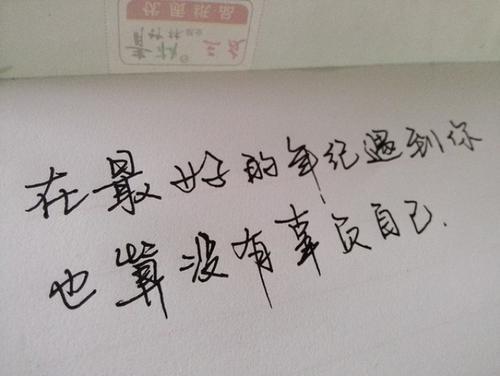 在最好的年纪遇到你
也算没有辜负自己.